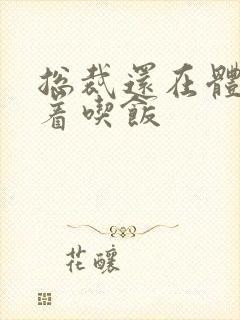 总裁還在體
着喫飯
花釀